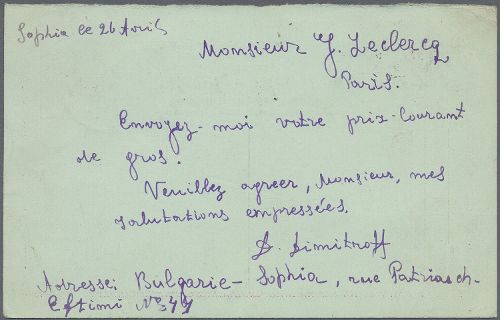 Sophia le 26 Avril
Monsieur J. Leclercq
Paris.
Envoyez-moi votre prix-Courant
de gros.
Veuillez agreer, Monsieur, mes
salutations empressées.
D. Dimitroff
Adresse: Bulgarie- Sophia, rue Patriasch-
Eftimi No 49